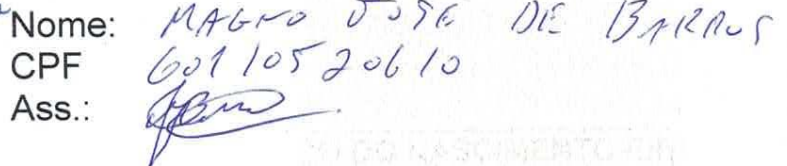 Nome: MAGNO JOSE DE BARROS
CPF 60110520610
Ass.: